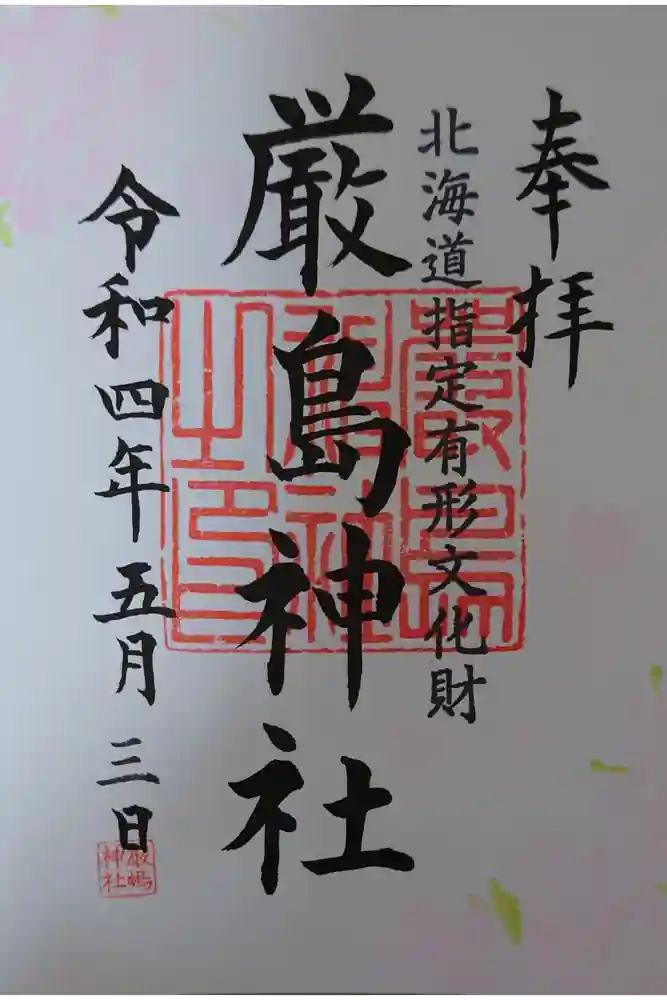 奉拝
北海道指定有形文化財
厳島神社
令和四年五月三日
厳嶋
神社